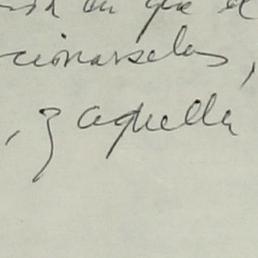 en que el
cionarselas,
, y aquella